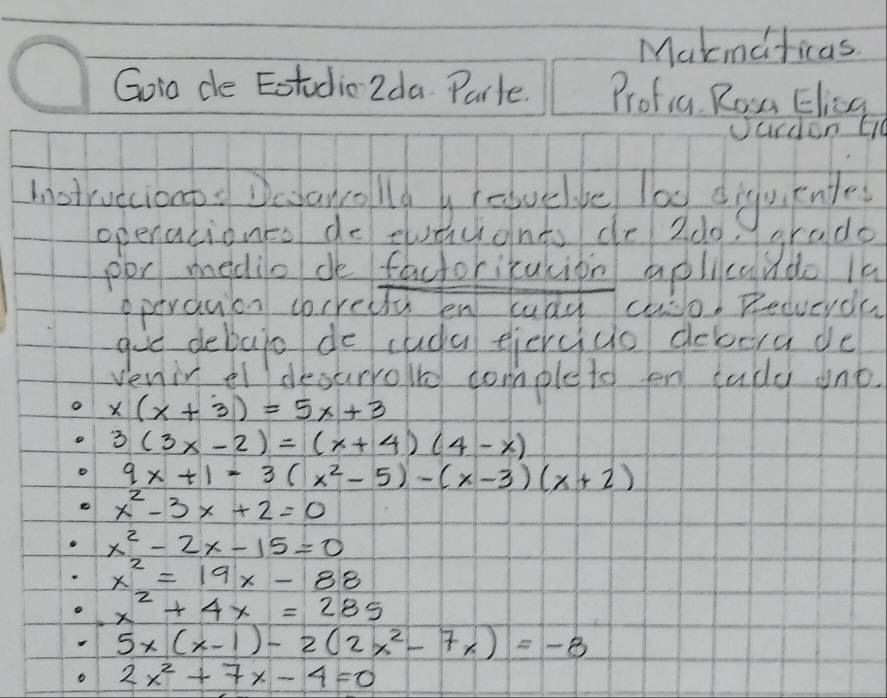 Matemáticas.
Guia de Estudio 2da. Parte.
Profra. Rosa Elisa
Instrucciones: Desarrolla y resuelve los siguientes
operaciones de ecuaciones de 2do. grado
por medio de factorización aplicando la
operación correcta en cada caso. Recuerda
que debajo de cada ejercicio deberá de
venir el desarrollo completo en cada uno.
• x(x + 3) = 5x + 3
• 3(3x - 2) = (x + 4)(4 - x)
• 9x + 1 = 3(x² - 5) - (x - 3)(x + 2)
• x² - 3x + 2 = 0
• x² - 2x - 15 = 0
• x² = 19x - 88
• x² + 4x = 285
• 5x(x - 1) - 2(2x² - 7x) = -8
• 2x² + 7x - 4 = 0